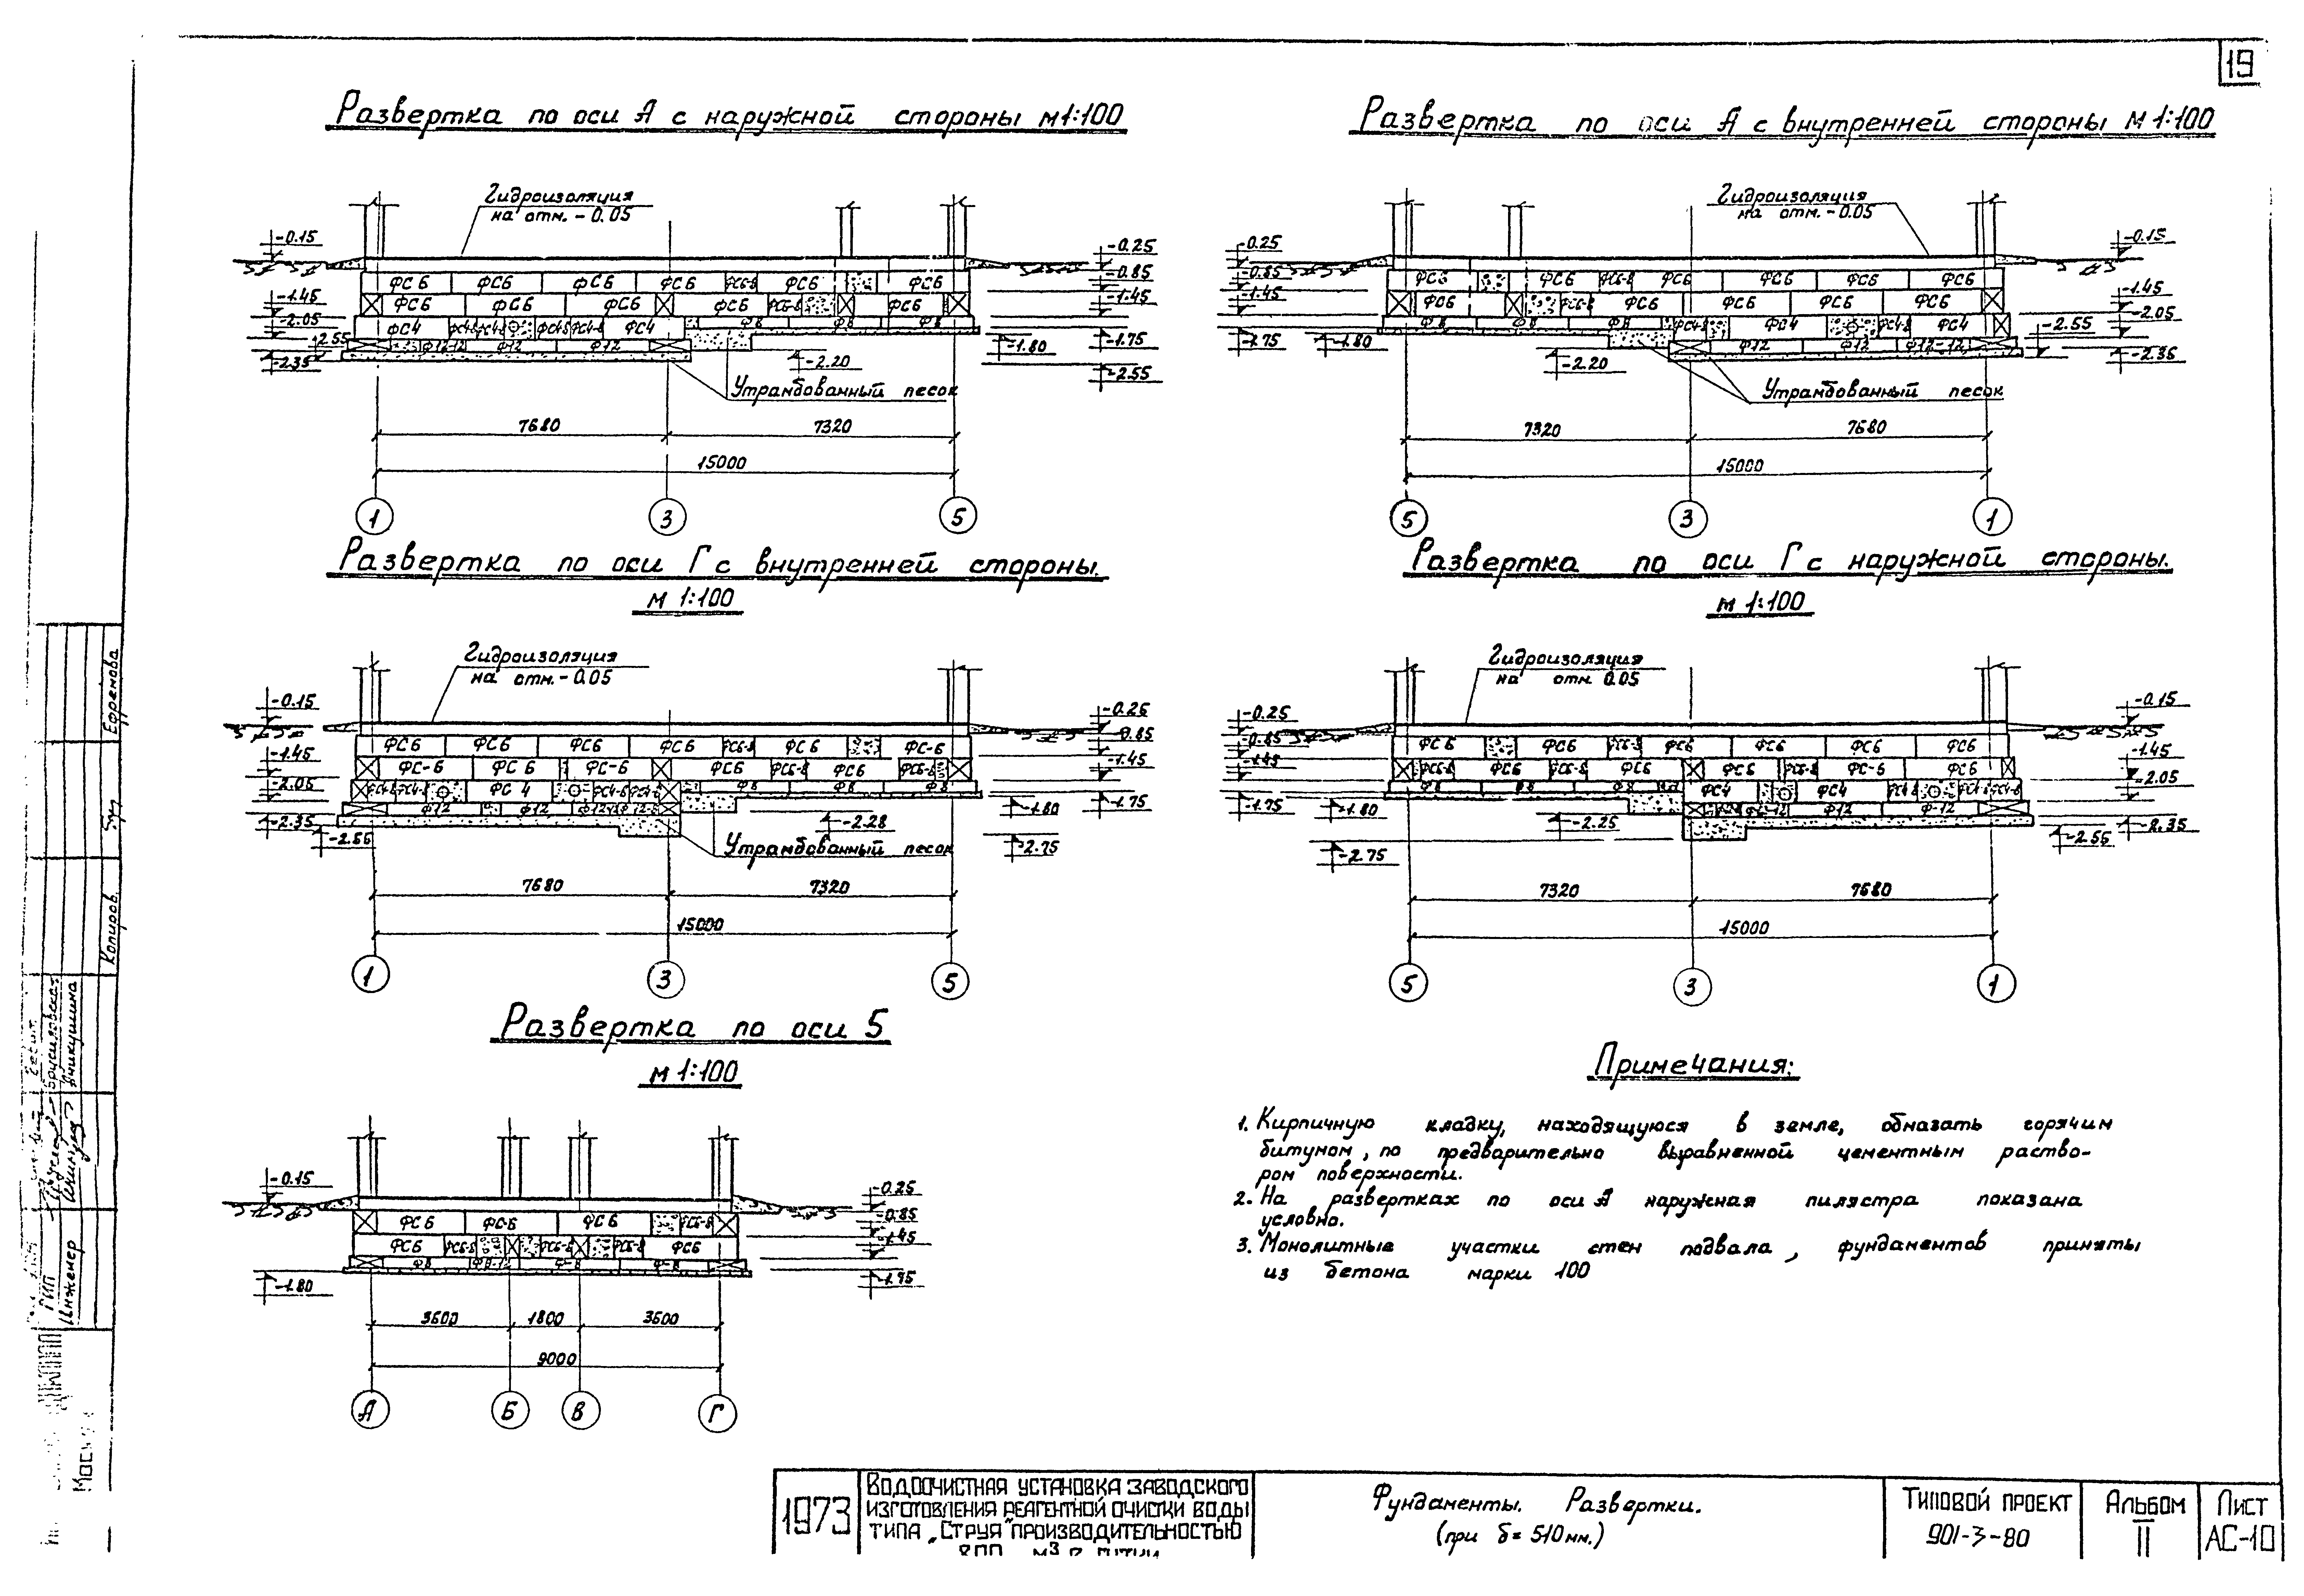 19
Развертка по оси А с наружной стороны м1:100
Гидроизоляция
на отм. -0.05
-0.15
-1.45
-2.05
-2.55
-2.35
-0.25
-0.85
-1.45
-1.80
-1.75
-2.20
-2.55
ФС6 ФС6 ФС6 ФС6 ФС6-8 ФС6 ФС6
ФС6 ФС6 ФС6 ФС6 ФС6-8 ФС6
ФС4 ФС4-8 ФС4-8 ФС4-8 ФС4-8 ФС4 Ф8 Ф8 Ф8
Ф12-12 Ф12 Ф12
Утрамбованный песок
7680 7320
15000
1 3 5
Развертка по оси А с внутренней стороны м 1:100
Гидроизоляция
на отм. -0.05
-0.25
-0.85
-1.45
-1.75
-1.80
-2.20
-0.15
-1.45
-2.05
-2.55
-2.35
ФС6 ФС6 ФС6-8 ФС6 ФС6 ФС6 ФС6
ФС6 ФС6-8 ФС6 ФС6 ФС6 ФС6
Ф8 Ф8 Ф8 ФС4-8 ФС4 ФС4-8 ФС4
Ф12 Ф12 Ф12-12
Утрамбованный песок
7320 7680
15000
5 3 1
Развертка по оси Г с внутренней стороны.
м 1:100
Гидроизоляция
на отм. -0.05
-0.15
-1.45
-2.05
-2.35
-2.55
-0.25
-0.85
-1.45
-1.80
-1.75
-2.28
-2.75
ФС6 ФС6 ФС6 ФС6 ФС6-8 ФС6 ФС-6
ФС-6 ФС6 ФС-6 ФС6 ФС6-8 ФС6 ФС6-8
ФС4-8 ФС4-8 ФС4 ФС4-8 ФС4-8 Ф8 Ф8 Ф8
Ф12 Ф12
Утрамбованный песок
7680 7320
15000
1 3 5
Развертка по оси Г с наружной стороны.
м 1:100
Гидроизоляция
на отм. 0.05
-0.25
-0.85
-1.45
-1.75
-1.80
-2.25
-2.75
-0.15
-1.45
-2.05
-2.35
-2.55
ФС6 ФС6 ФС6-8 ФС6 ФС6 ФС6 ФС6
ФС6-8 ФС6 ФС6-8 ФС6 ФС6 ФС6-8 ФС-6 ФС6
Ф8 Ф8 Ф8 ФС4 ФС4 ФС4-8 ФС4-8
Ф12 Ф-12
7320 7680
15000
5 3 1
Развертка по оси 5
м 1:100
-0.15
-1.80
-0.25
-0.85
-1.45
-1.75
ФС6 ФС6 ФС6 ФС6-8
ФС6 ФС6-8 ФС6-8 ФС6-8 ФС6
Ф8 Ф8-12 Ф-8 Ф-8
3600 1800 3600
9000
А Б В Г
Примечания:
1. Кирпичную кладку, находящуюся в земле, обмазать горячим
битумом, по предварительно выравненной цементным раство-
ром поверхности.
2. На развертках по оси А наружная пилястра показана
условно.
3. Монолитные участки стен подвала, фундаментов приняты
из бетона марки 100
Ефремова
Копиров.
Аникушина
ГИП
Инженер
1973
Водоочистная установка заводского
изготовления реагентной очистки воды
типа „Струя" производительностью
800 м3 в сутки
Фундаменты. Развертки.
(при δ= 510мм.)
Типовой проект
901-3-80
Альбом
II
Лист
АС-10